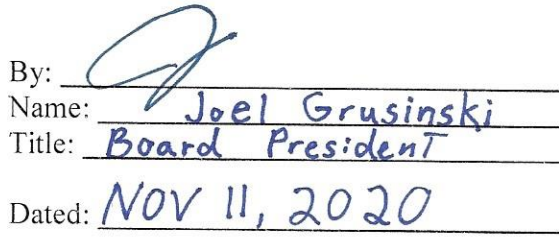 By:
Name: Joel Grusinski
Title: Board President
Dated: NOV 11, 2020